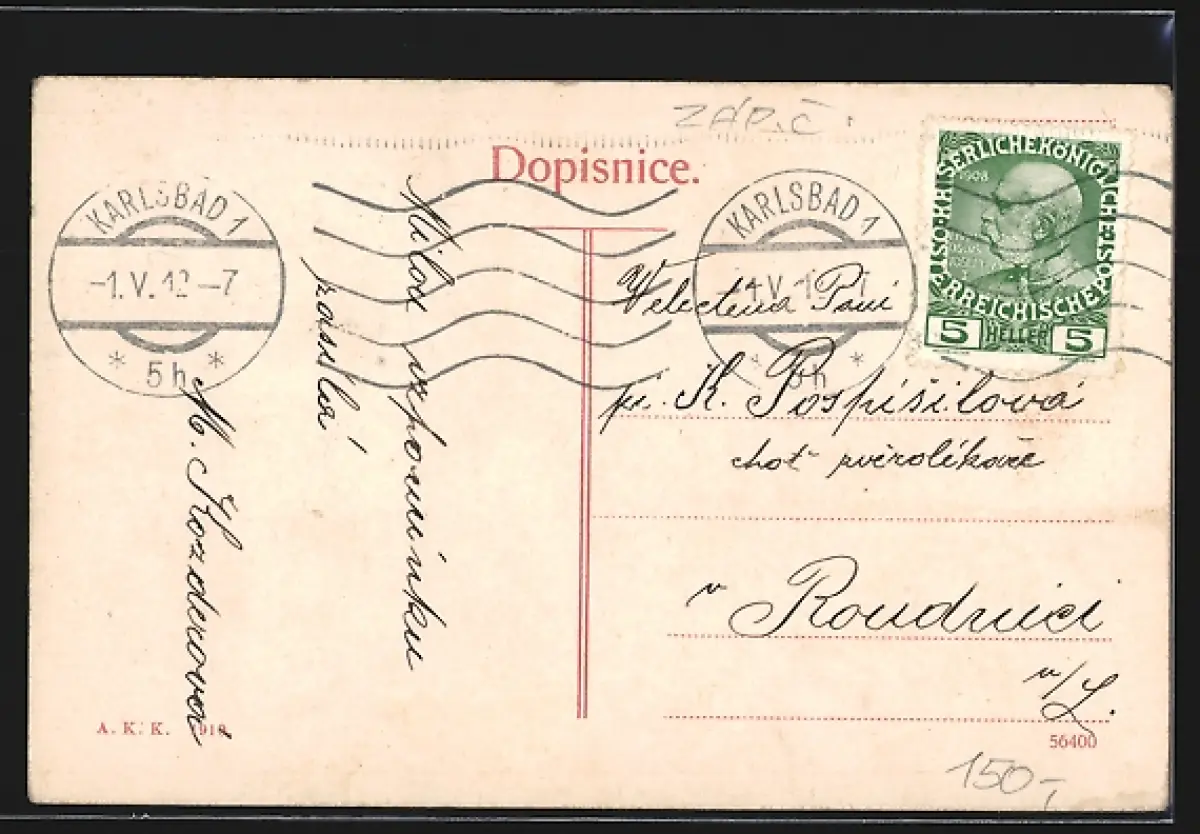 ZAP.Č.
Dopisnice.
KARLSBAD 1
-1.V.12-7
* 5h *
KARLSBAD 1
* 5h *
KAISERLICHE KÖNIGLICHE ÖSTERREICHISCHE POST
1908
5 HELLER 5
Milou vzpomínku
zasílá
M. Kozderová
Velectěná Paní
pí. K. Pospíšilová
choť zvěrolékaře
v Roudnici
n/L.
A. K. K. 1910
56400
150,-